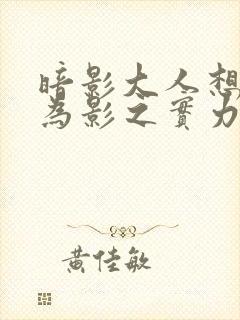 暗影大人想
為影之實力
黃佳敏